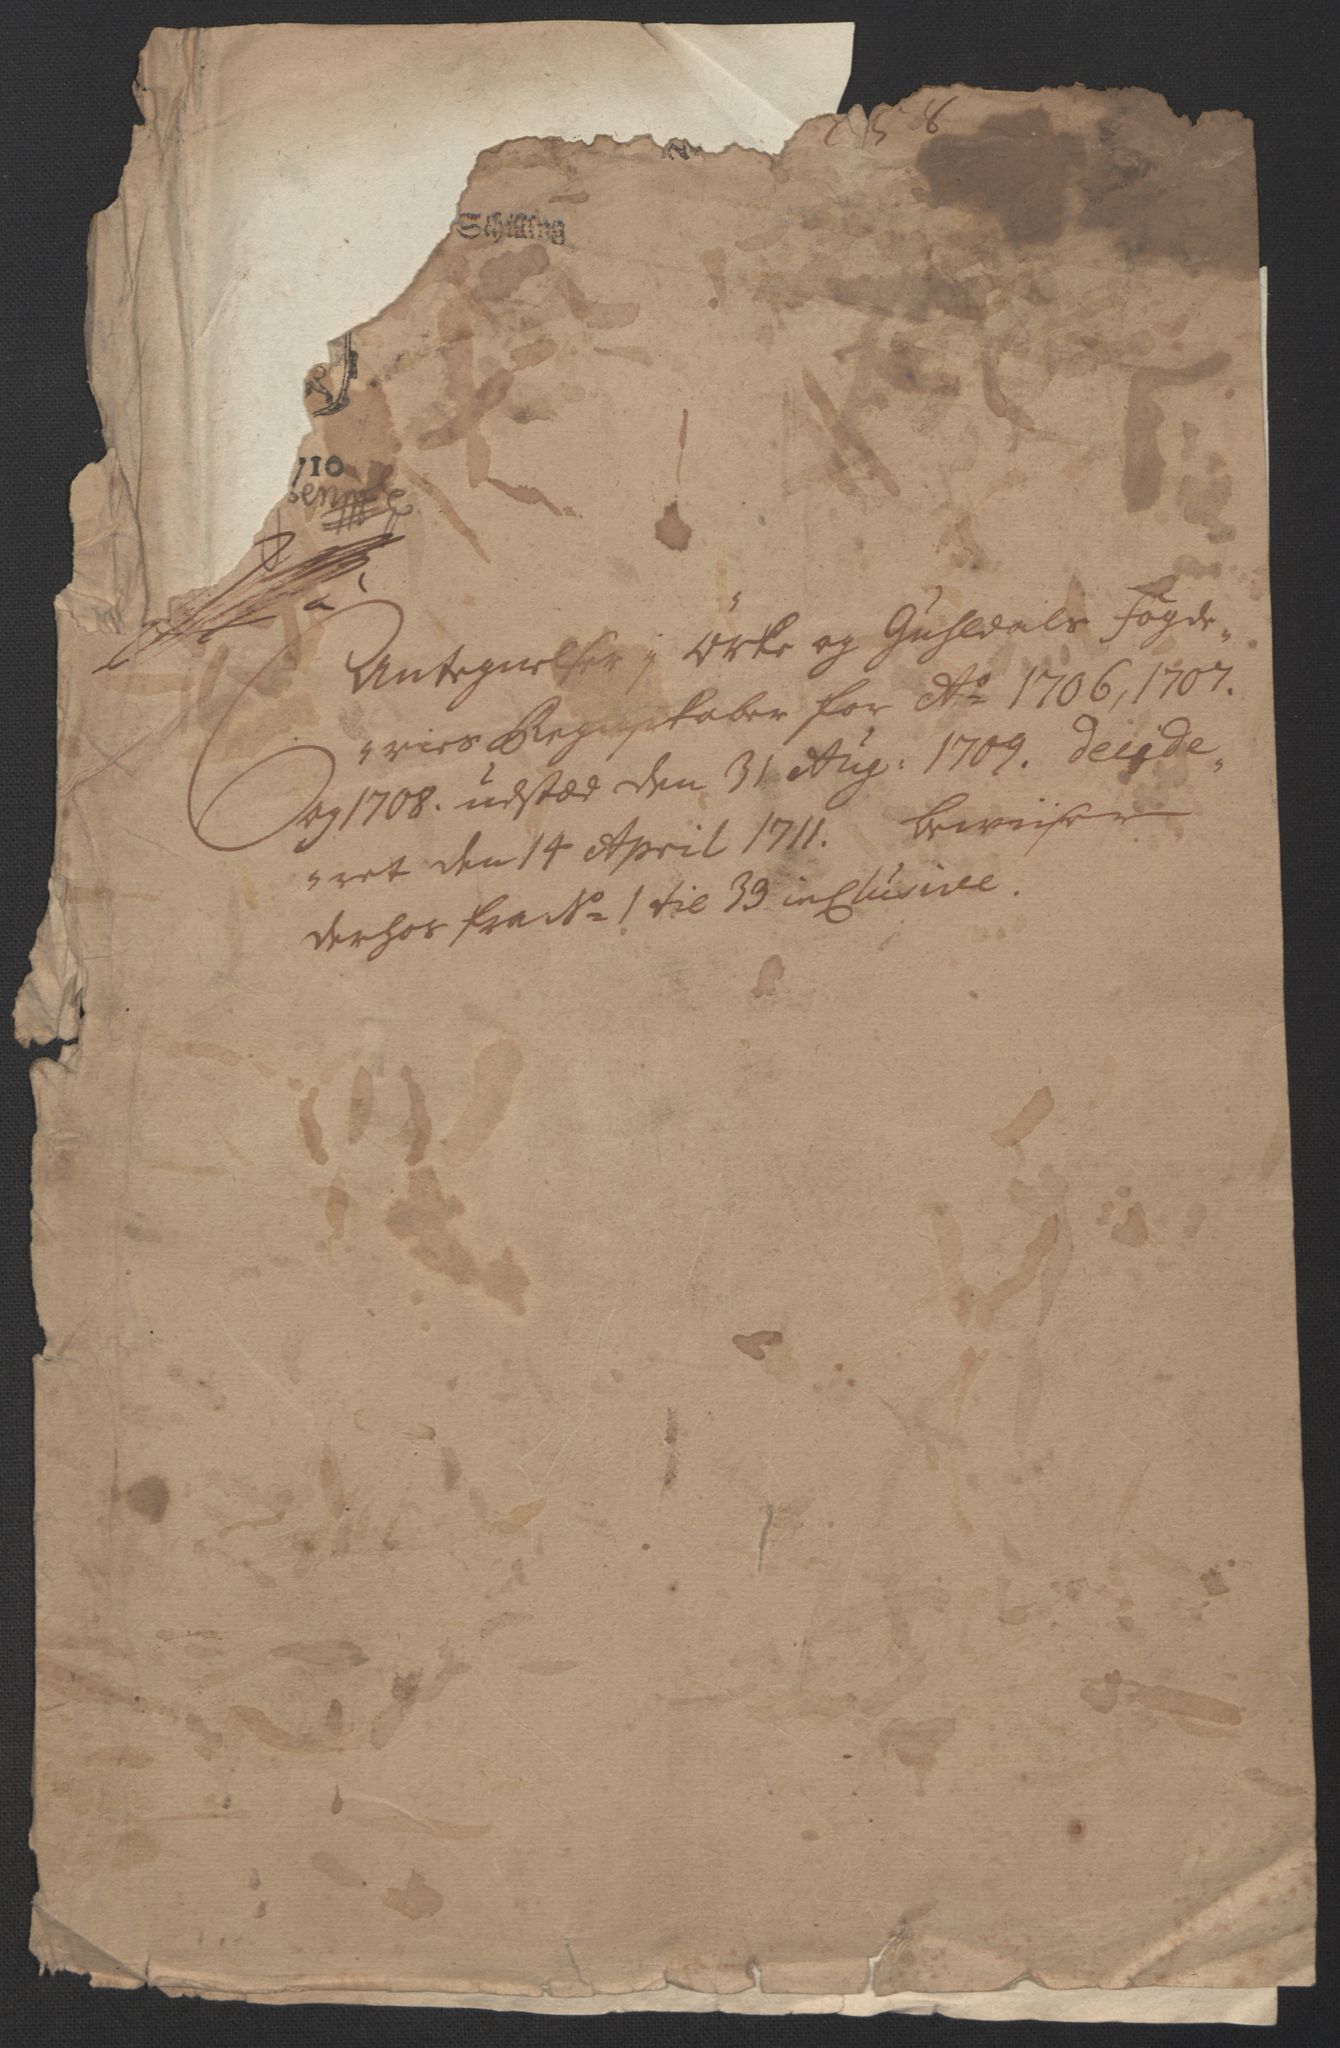 258
Schilling
710
Antegnelser i Örke og Guhldals Fogde„
„ries Regnskaber for Ao 1706, 1707.
og 1708. udstæd den 31 Aug: 1709. Decide„
„ret den 14 April 1711. Beviiser
derhos fra No 1 til 39 inclusive.